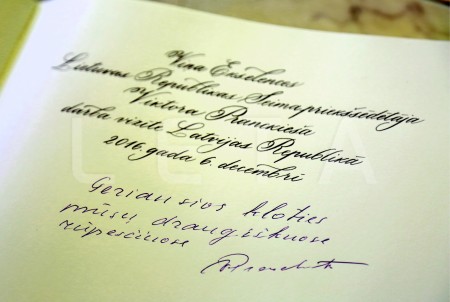 Viņa Ekselences
Lietuvas Republikas Seima priekšsēdētāja
Viktora Pranckieša
darba vizīte Latvijas Republikā
2016. gada 6. decembrī
Geriausios kloties
mūsų draugiškuose
rūpesčiuose
LETA